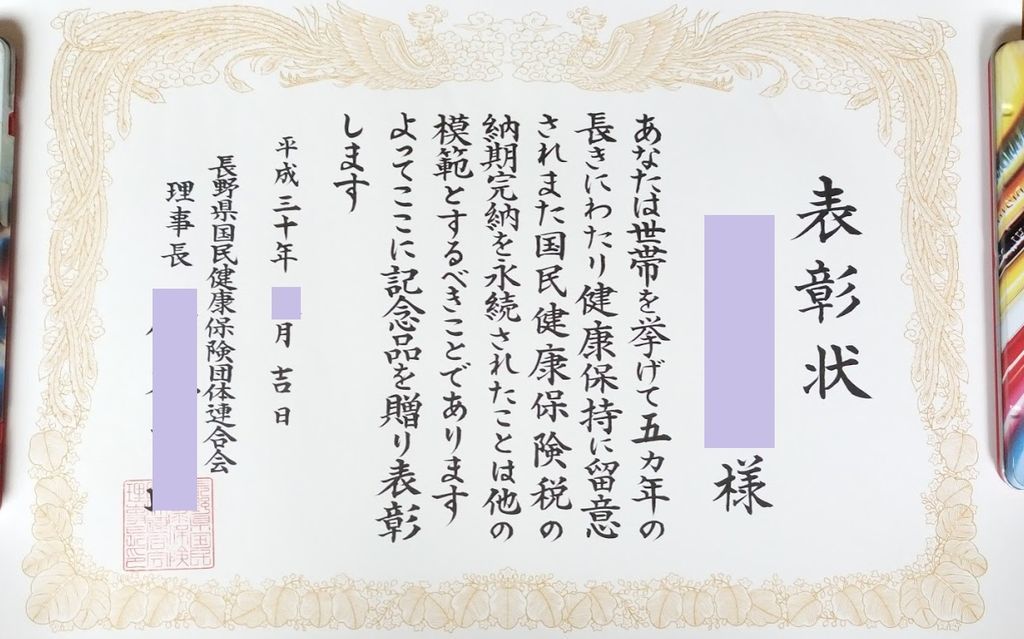 表彰状
様
あなたは世帯を挙げて五カ年の
長きにわたり健康保持に留意
されまた国民健康保険税の
納期完納を永続されたことは他の
模範とするべきことであります
よってここに記念品を贈り表彰
します
平成三十年 月吉日
長野県国民健康保険団体連合会
理事長